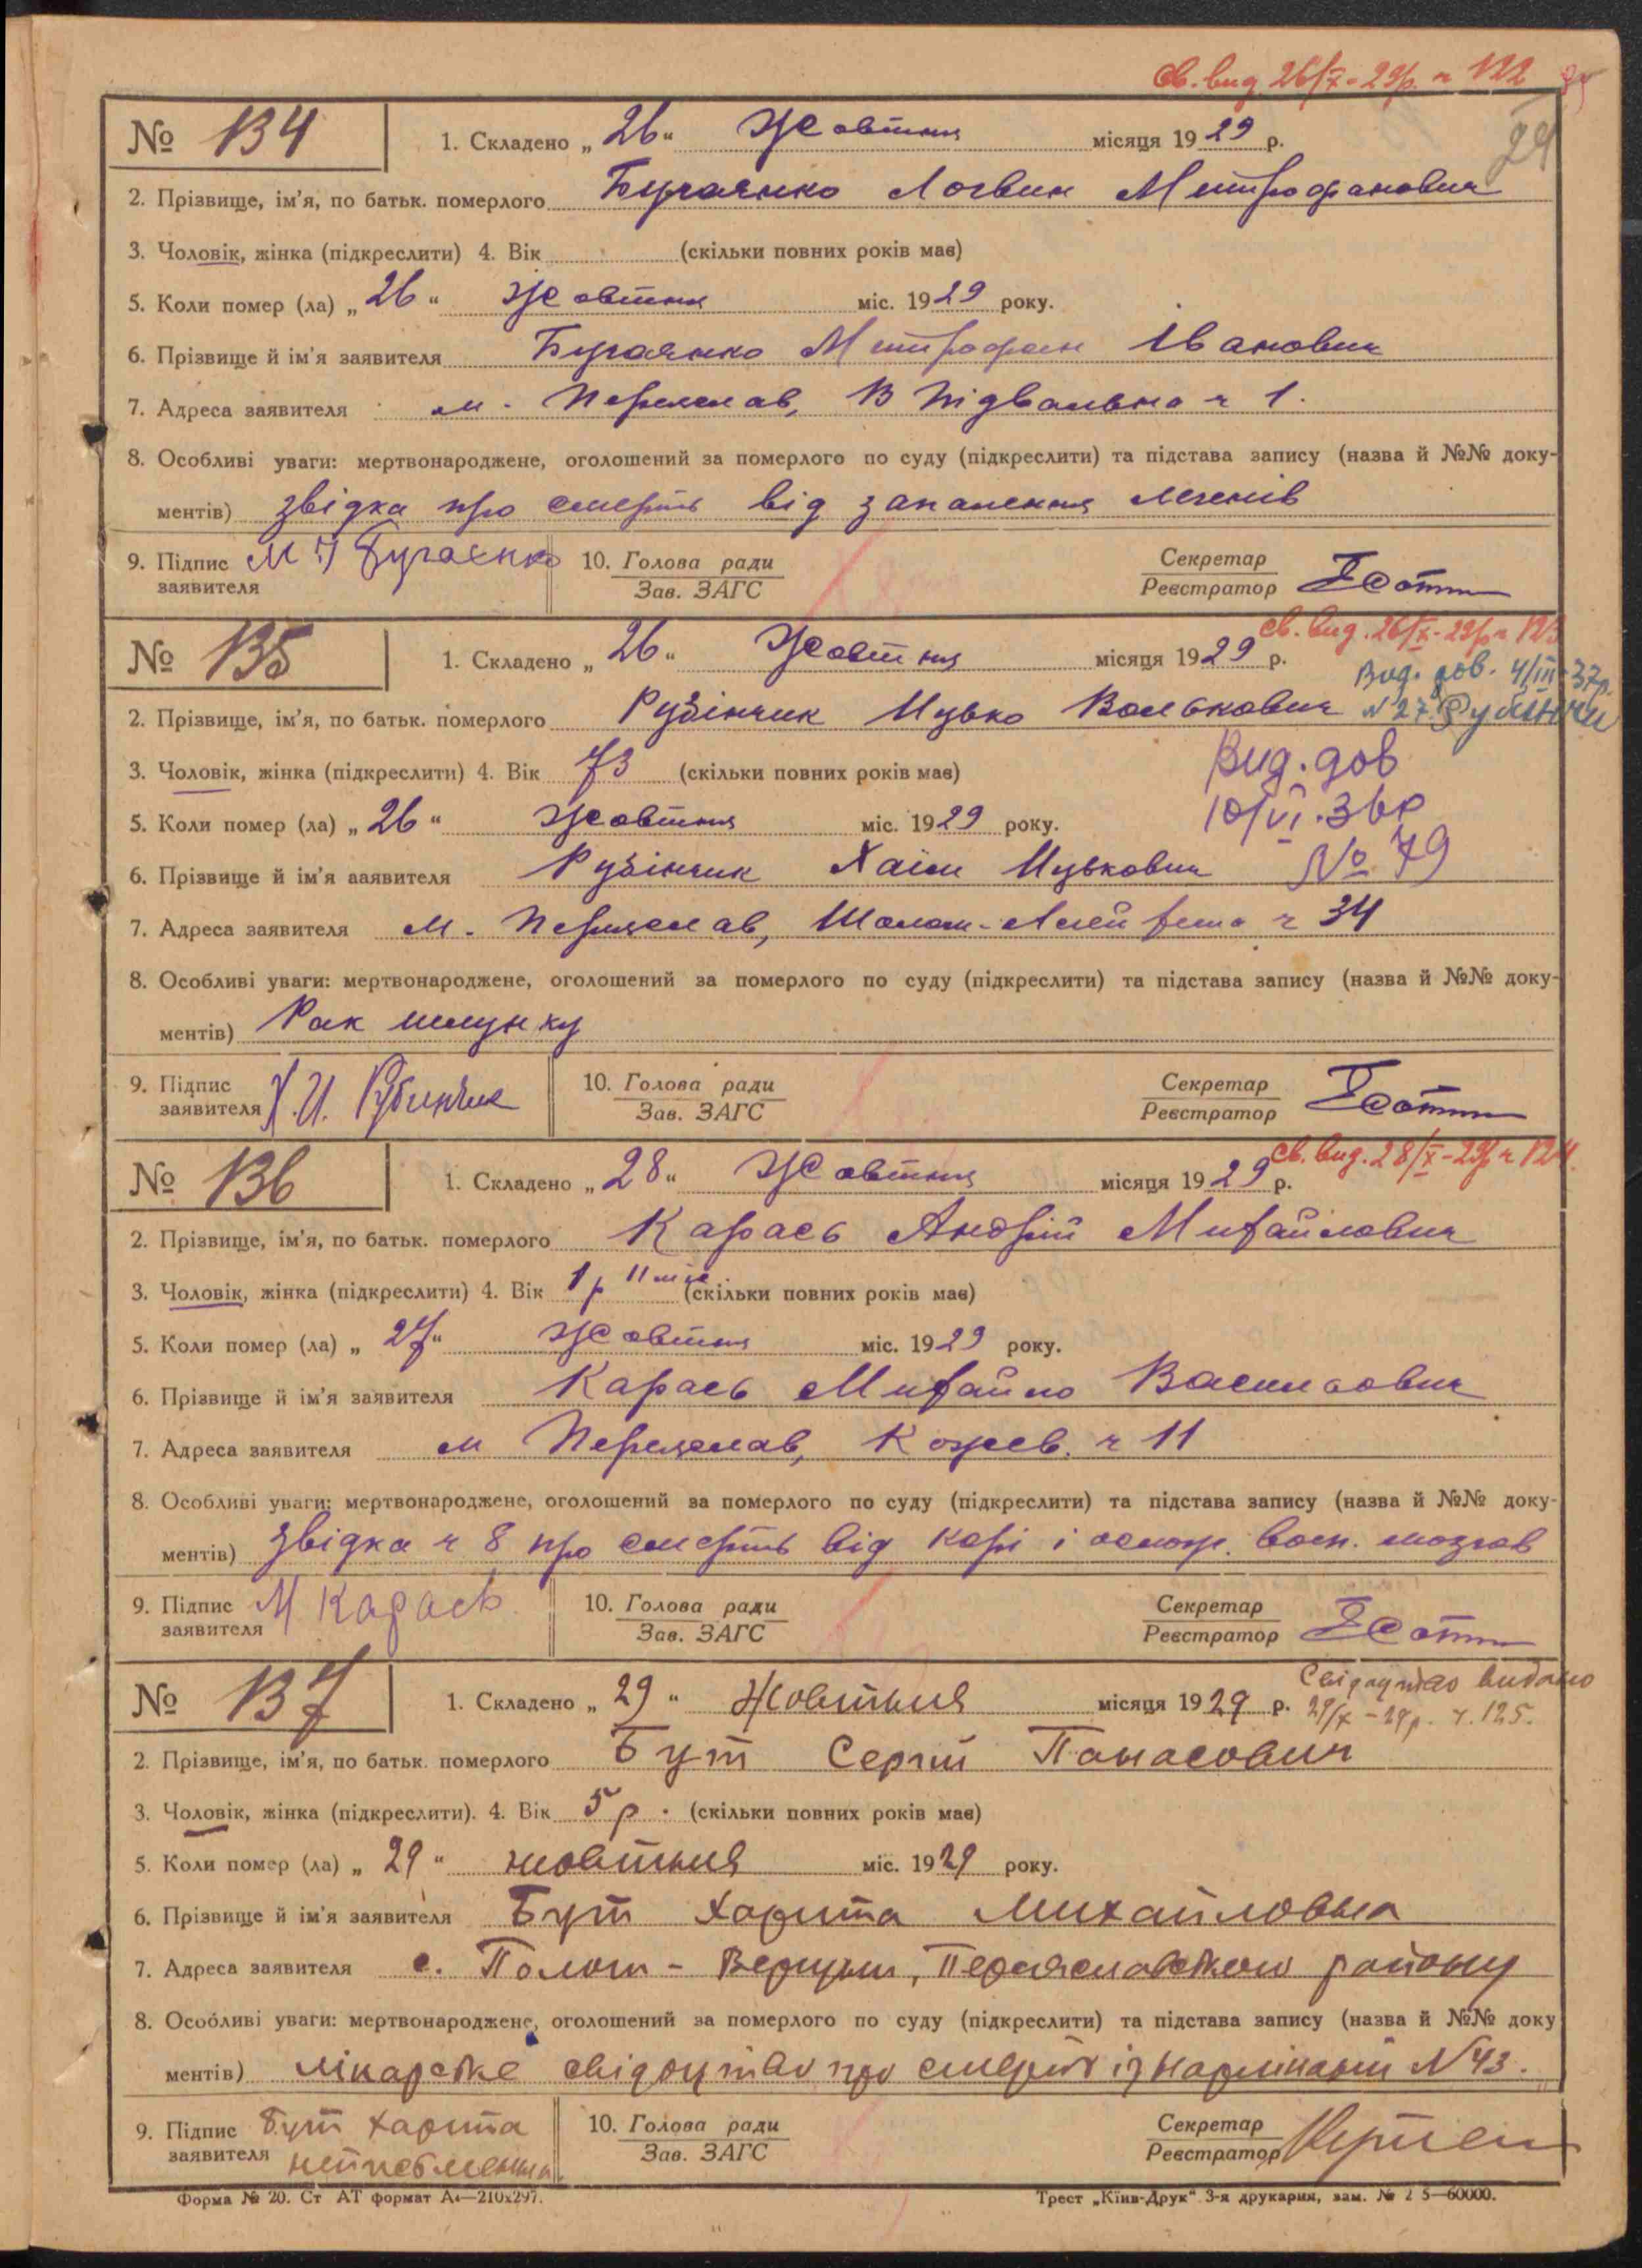 св. вид 26/X-29р. ч 122
№ 134
1. Складено „26“ Жовтня місяця 1929 р.
2. Прізвище, ім'я, по батьк. померлого Бугаєнко Логвин Митрофанович
3. Чоловік, жінка (підкреслити) 4. Вік (скільки повних років має)
5. Коли помер (ла) „26“ Жовтня міс. 1929 року.
6. Прізвище й ім'я заявителя Бугаєнко Митрофан Іванович
7. Адреса заявителя м. Переяслав, В Підвальна ч 1.
8. Особливі уваги: мертвонароджене, оголошений за померлого по суду (підкреслити) та підстава запису (назва й №№ доку-
ментів) звідка про смерть від запалення легенів
9. Підпис заявителя М І Бугаєнко 10. Голова ради Зав. ЗАГС Секретар Реєстратор
св. вид. 26/X-29р ч 123
№ 135
1. Складено „26“ Жовтня місяця 1929 р.
Вид. дов. 4/III-37р.
2. Прізвище, ім'я, по батьк. померлого Рубінчик Ицько Волькович №27
3. Чоловік, жінка (підкреслити) 4. Вік 73 (скільки повних років має) Вид. дов
5. Коли помер (ла) „26“ Жовтня міс. 1929 року. 10/VI.36р
6. Прізвище й ім'я заявителя Рубінчик Хаім Ицькович № 79
7. Адреса заявителя м. Переяслав, Шолом-Алейхема ч 34
8. Особливі уваги: мертвонароджене, оголошений за померлого по суду (підкреслити) та підстава запису (назва й №№ доку-
ментів) Рак шлунку
9. Підпис заявителя Х.И. Рубинчик 10. Голова ради Зав. ЗАГС Секретар Реєстратор
св. вид. 28/X-29р ч 124.
№ 136
1. Складено „28“ Жовтня місяця 1929 р.
2. Прізвище, ім'я, по батьк. померлого Карась Андрій Михайлович
3. Чоловік, жінка (підкреслити) 4. Вік 1 р 11 міс. (скільки повних років має)
5. Коли помер (ла) „27“ Жовтня міс. 1929 року.
6. Прізвище й ім'я заявителя Карась Михайло Васильович
7. Адреса заявителя м Переяслав, Кожев. ч 11
8. Особливі уваги: мертвонароджене, оголошений за померлого по суду (підкреслити) та підстава запису (назва й №№ доку-
ментів) звідка ч 8 про смерть від корі і ослож. восп. мозгов
9. Підпис заявителя М Карась 10. Голова ради Зав. ЗАГС Секретар Реєстратор
№ 137
1. Складено „29“ Жовтня місяця 1929 р. Свідоцтво видано
29/X-29р. ч. 125.
2. Прізвище, ім'я, по батьк. померлого Бут Сергій Панасович
3. Чоловік, жінка (підкреслити). 4. Вік 5 р. (скільки повних років має)
5. Коли помер (ла) „29“ жовтня міс. 1929 року.
6. Прізвище й ім'я заявителя Бут Харита Михайловна
7. Адреса заявителя с. Полог-Вергуни, Переяславського району
8. Особливі уваги: мертвонароджене, оголошений за померлого по суду (підкреслити) та підстава запису (назва й №№ доку
ментів) лікарське свідоцтво про смерть із Нарлікарні N43.
9. Підпис заявителя Бут Харита неписьменна. 10. Голова ради Зав. ЗАГС Секретар Реєстратор
Форма № 20. Ст АТ формат А4—210х297. Трест „Київ-Друк“ 3-я друкарня, зам. № 2 5—60000.